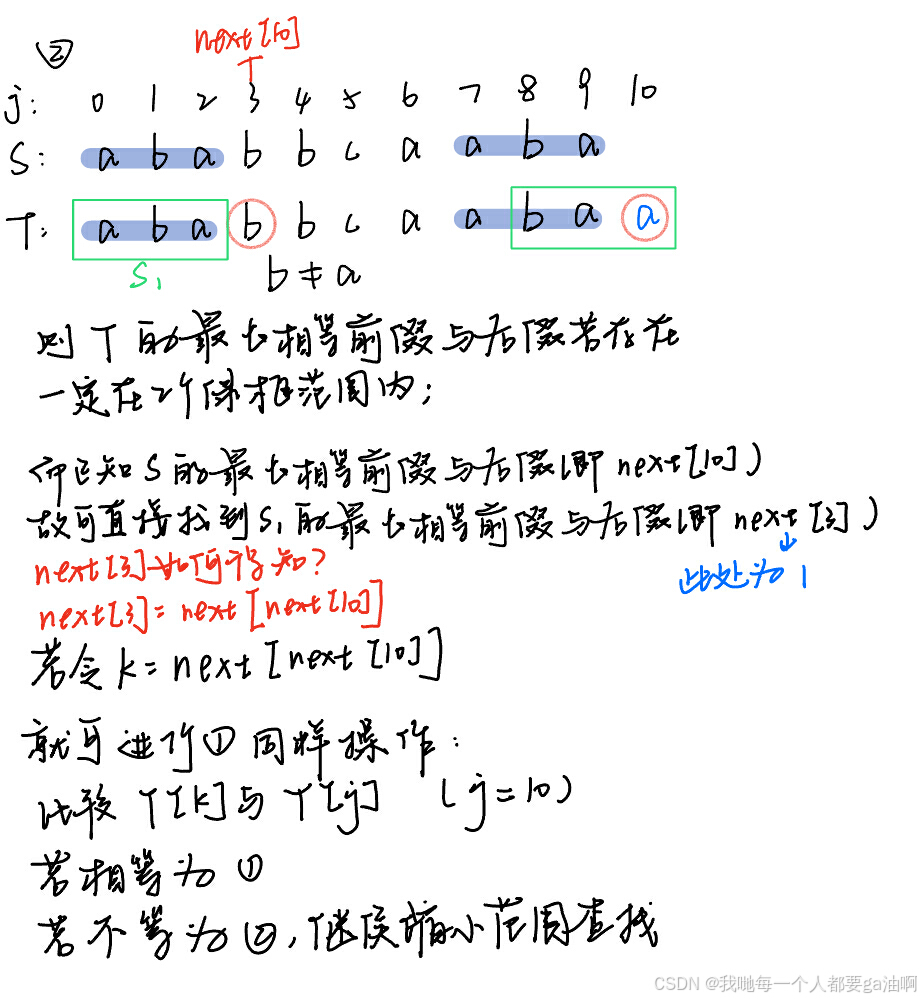 next[10]
②
j: 0 1 2 3 4 5 6 7 8 9 10
S: a b a b b c a a b a
T: a b a b b c a a b a a
S₁ b≠a
则T的最长相等前缀与后缀若存在
一定在2个绿框范围内;
而已知S的最长相等前缀与后缀(即next[10])
故可直接找到S₁的最长相等前缀与后缀(即next[3])
next[3]如何得知?
此处为1
next[3]=next[next[10]]
若令k=next[next[10]]
就可进行①同样操作:
比较T[k]与T[j] (j=10)
若相等为①
若不等为②,继续缩小范围查找
CSDN @我哋每一个人都要ga油啊